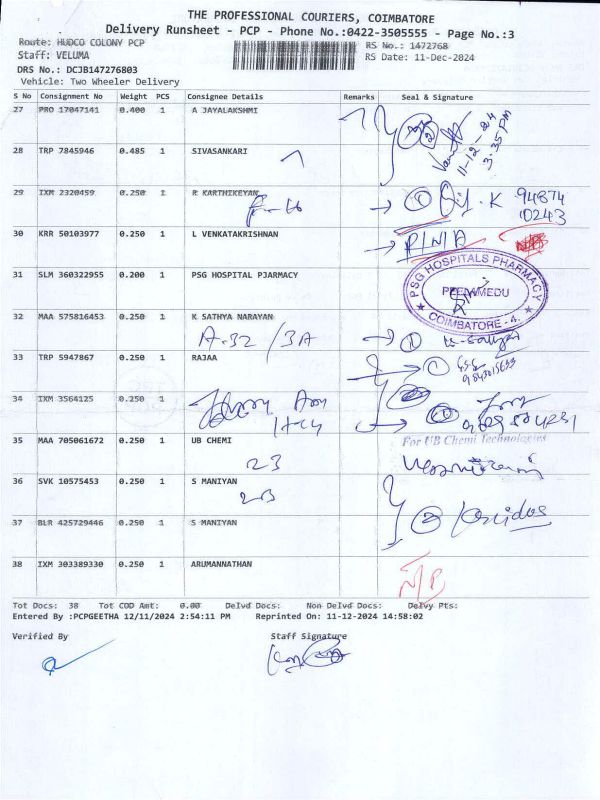 THE PROFESSIONAL COURIERS, COIMBATORE
Delivery Runsheet - PCP - Phone No.:0422-3505555 - Page No.:3
Route: HUDCO COLONY PCP RS No.: 1472768
Staff: VELUMA RS Date: 11-Dec-2024
DRS No.: DCJB147276803
Vehicle: Two Wheeler Delivery
S No Consignment No Weight PCS Consignee Details Remarks Seal & Signature
27 PRO 17047141 0.400 1 A JAYALAKSHMI
2
11-12-24
3:35 PM
28 TRP 7845946 0.485 1 SIVASANKARI
29 IXM 2320459 0.250 1 R KARTHIKEYAN
1 K 94874
10243
30 KRR 50103977 0.250 1 L VENKATAKRISHNAN
31 SLM 360322955 0.200 1 PSG HOSPITAL PJARMACY
PSG HOSPITALS PHARMACY
PEELAMEDU
COIMBATORE - 4.
32 MAA 575816453 0.250 1 K SATHYA NARAYAN
A-32 / 3A 1
33 TRP 5947867 0.250 1 RAJAA
1
34 IXM 3564125 0.250 1
35 MAA 705061672 0.250 1 UB CHEMI
For UB Chemi Technologies
23
36 SVK 10575453 0.250 1 S MANIYAN
23
2
37 BLR 425729446 0.250 1 S MANIYAN
38 IXM 303389330 0.250 1 ARUMANNATHAN
N/P
Tot Docs: 38 Tot COD Amt: 0.00 Delvd Docs: Non Delvd Docs: Delvy Pts:
Entered By :PCPGEETHA 12/11/2024 2:54:11 PM Reprinted On: 11-12-2024 14:58:02
Verified By Staff Signature